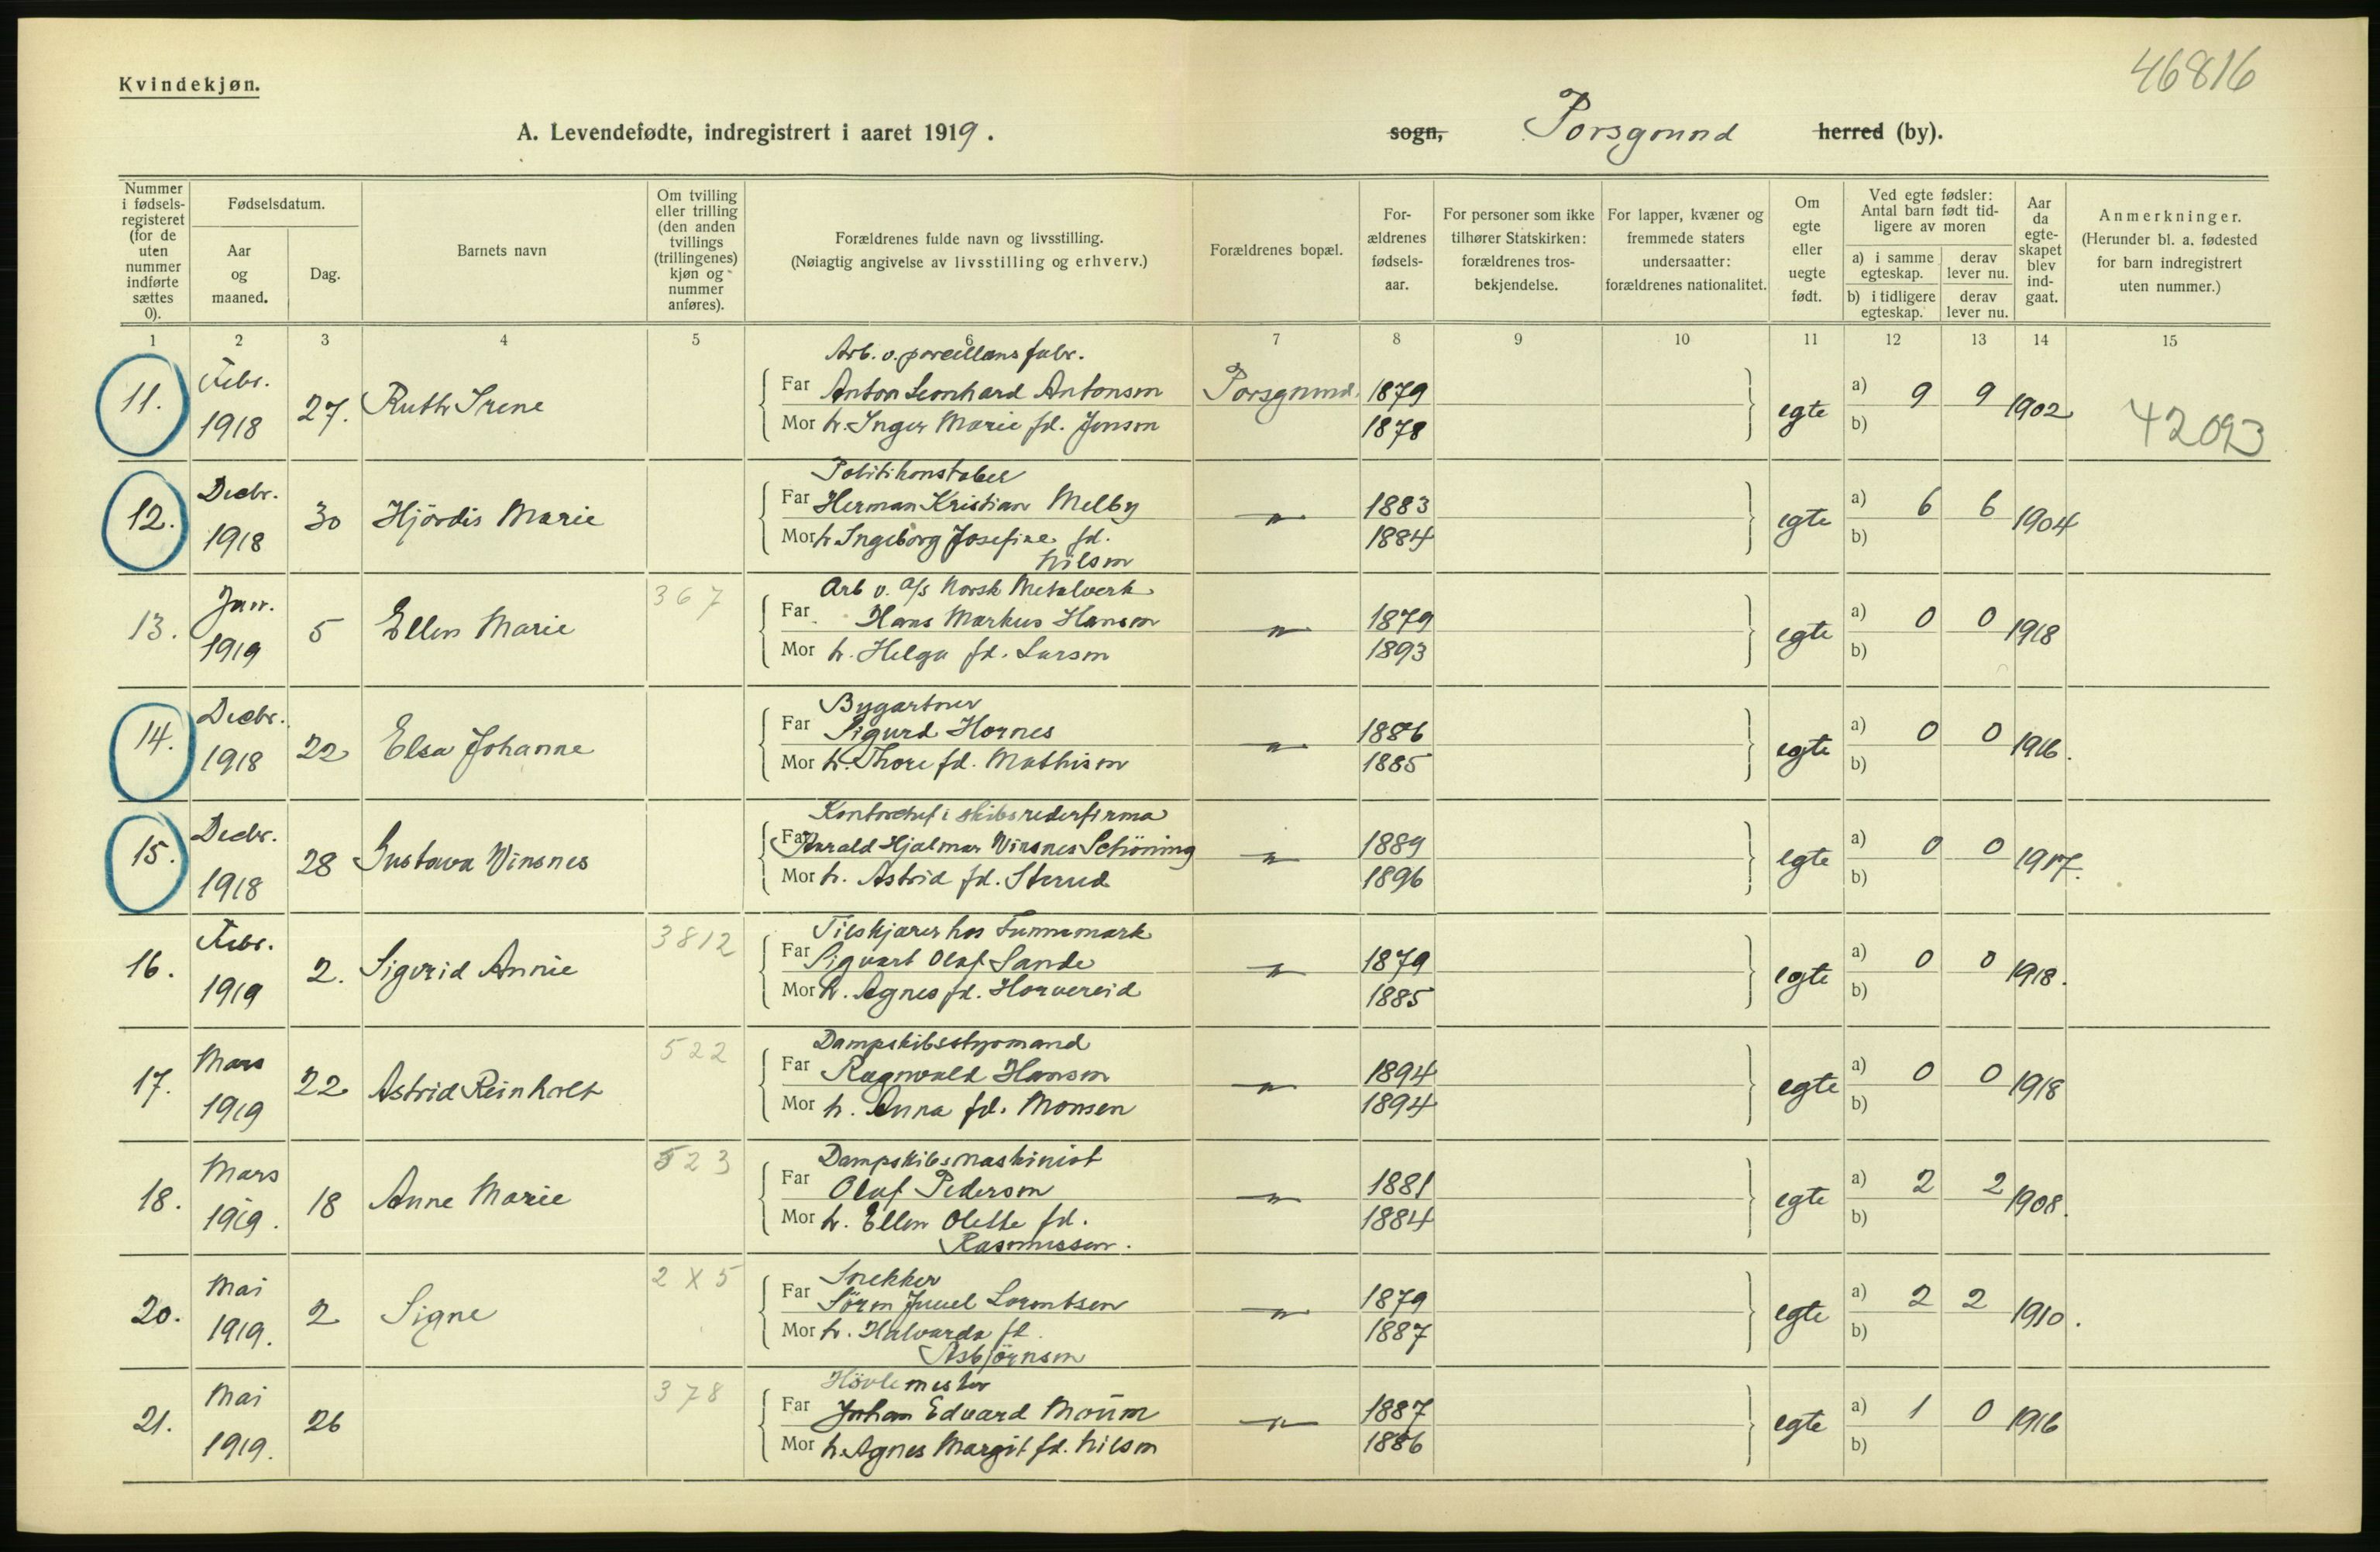 46816
Kvindekjøn.
A. Levendefødte, indregistrert i aaret 1919. sogn, Porsgrund herred (by).
Nummer i fødselsregisteret (for de uten nummer indførte sættes 0).
Fødselsdatum.
Aar og maaned.
Dag.
Barnets navn
Om tvilling eller trilling (den anden tvillings (trillingenes) kjøn og nummer anføres).
Forældrenes fulde navn og livsstilling.
(Nøiagtig angivelse av livsstilling og erhverv.)
Forældrenes bopæl.
For-ældrenes fødsels-aar.
For personer som ikke tilhører Statskirken: forældrenes tros-bekjendelse.
For lapper, kvæner og fremmede staters undersaatter: forældrenes nationalitet.
Om egte eller uegte født.
Ved egte fødsler: Antal barn født tid-ligere av moren
a) i samme egteskap. derav lever nu.
b) i tidligere egteskap. derav lever nu.
Aar da egte-skapet blev ind-gaat.
Anmerkninger.
(Herunder bl. a. fødested for barn indregistrert uten nummer.)
1 2 3 4 5 6 7 8 9 10 11 12 13 14 15
Arb. v. porcellansfabr.
11. Febr. 1918 27. Ruth Irene Far Anton Leonhard Antonsen Porsgrund. 1879 egte a) 9 9 1902 42093
Mor h. Inger Marie fd. Jensen 1878 b)
Politikonstabel
12. Decbr. 1918 30 Hjördis Marie Far Herman Kristian Melby " 1883 egte a) 6 6 1904
Mor h. Ingeborg Josefine fd. Nilsen 1884 b)
367 Arb v. A/s Norsk Metalverk
13. Jan. 1919 5 Ellen Marie Far Hans Markus Hansen " 1879 egte a) 0 0 1918
Mor h. Helga fd. Larsen 1893 b)
Bygartner
14. Decbr. 1918 22 Elsa Johanne Far Sigurd Hornes " 1886 egte a) 0 0 1916.
Mor h. Thore fd. Mathisen 1885 b)
Kontorchef i skibsrederfirma
15. Decbr. 1918 28 Gustava Vinsnes Far Harald Hjalmar Vinsnes Schöning " 1889 egte a) 0 0 1917.
Mor h. Astrid fd. Sterud 1896 b)
3812 Tilskjærer hos Tunnemark
16. Febr. 1919 2. Sigvrid Annie Far Sigvart Olaf Sande " 1879 egte a) 0 0 1918.
Mor h. Agnes fd. Horvereid 1885 b)
522 Dampskibsstyrmand
17. Mars 1919 22 Astrid Reinholt Far Ragnvald Hansen " 1894 egte a) 0 0 1918
Mor h. Anna fd. Monsen 1894 b)
523 Dampskibsmaskinist
18. Mars 1919. 18 Anne Marie Far Olaf Pedersen " 1881 egte a) 2 2 1908.
Mor h. Ellen Olette fd. Rasmussen. 1884 b)
2X5 Snekker
20. Mai 1919. 2 Signe Far Sören Juuel Lorentsen " 1879 egte a) 2 2 1910.
Mor h. Halvarda fd. Asbjörnsen 1887 b)
378 Hövlemester
21. Mai 1919. 26 Far Johan Edvard Moum " 1887 egte a) 1 0 1916
Mor h. Agnes Margit fd. Nilsen 1886 b)